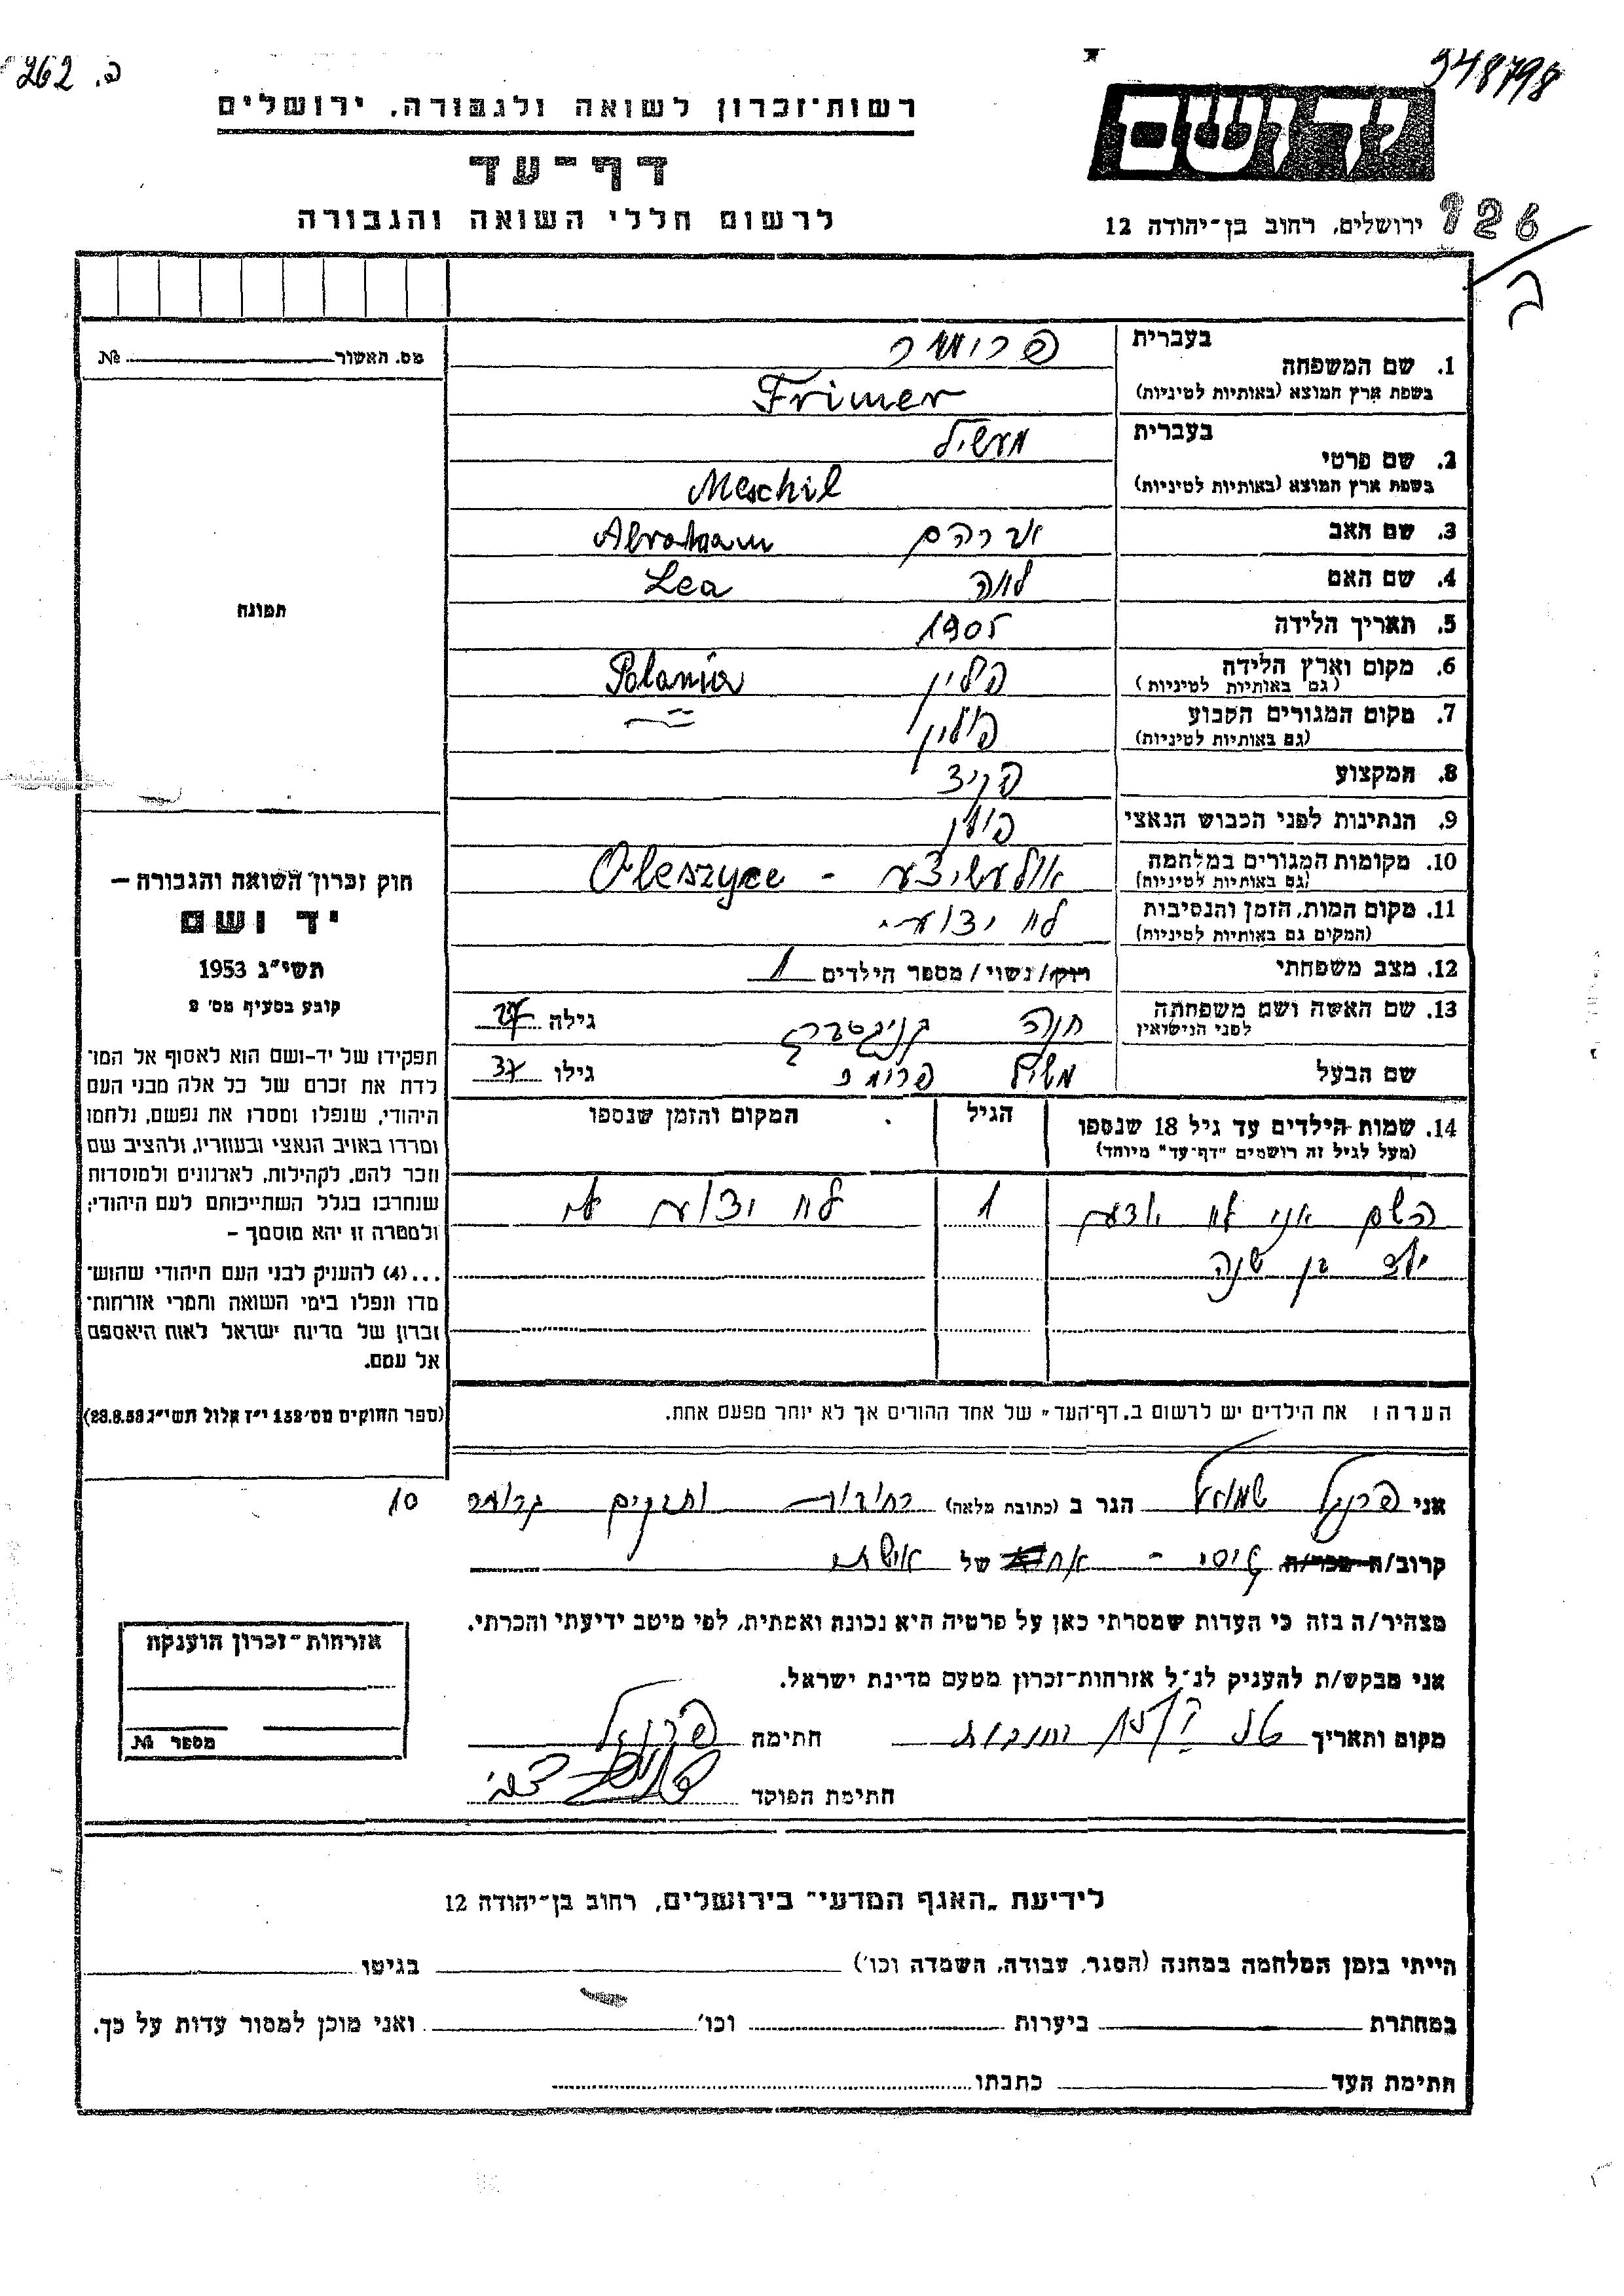 262 .ב
948798
רשות-זכרון לשואה ולגבורה, ירושלים
יד ושם
דף-עד
לרשום חללי השואה והגבורה
ירושלים, רחוב בן-יהודה 12
126
ב
מס. האשור № 
תמונה
1. שם המשפחה
בעברית
פרומער
בשפת ארץ המוצא (באותיות לטיניות)
Frimer
2. שם פרטי
בעברית
מעשיל
בשפת ארץ המוצא (באותיות לטיניות)
Meschil
3. שם האב אברהם Abraham
4. שם האם לאה Lea
5. תאריך הלידה 1905
6. מקום וארץ הלידה פולין Polania
(גם באותיות לטיניות)
7. מקום המגורים הקבוע פולין
(גם באותיות לטיניות)
8. המקצוע
9. הנתינות לפני הכבוש הנאצי פולין
10. מקומות המגורים במלחמה אולעשיצע - Oleszyce
(גם באותיות לטיניות)
11. מקום המות, הזמן והנסיבות לא ידוע
(המקום גם באותיות לטיניות)
12. מצב משפחתי רווק/נשוי/מספר הילדים 1
13. שם האשה ושם משפחתה חנה גילה 27
לפני הנישואין
שם הבעל משיל פרומר גילו 37
14. שמות הילדים עד גיל 18 שנספו הגיל המקום והזמן שנספו
(מעל לגיל זה רושמים "דף-עד" מיוחד)
השם אני לא 1 לא ידוע לי
ילד בן שנה
הערה: את הילדים יש לרשום ב„דף-העד" של אחד ההורים אך לא יותר מפעם אחת.
חוק זכרון השואה והגבורה –
יד ושם
תשי"ג 1953
קובע בסעיף מס' 2
תפקידו של יד-ושם הוא לאסוף אל המו־
לדת את זכרם של כל אלה מבני העם
היהודי, שנפלו ומסרו את נפשם, נלחמו
ומרדו באויב הנאצי ובעוזריו, ולהציב שם
וזכר להם, לקהילות, לארגונים ולמוסדות
שנחרבו בגלל השתייכותם לעם היהודי;
ולמטרה זו יהא מוסמך –
...(4) להעניק לבני העם היהודי שהוש־
מדו ונפלו בימי השואה והמרי אזרחות־
זכרון של מדינת ישראל לאות היאספם
אל עמם.
(ספר החוקים מס' 132 י"ז אלול תשי"ג 28.8.53)
אני פרנקל שמואל הגר ב (כתובת מלאה) רחובות 10
קרוב/ה מכר/ה גיסי - של אישתי
מצהיר/ה בזה כי העדות שמסרתי כאן על פרטיה היא נכונה ואמתית, לפי מיטב ידיעתי והכרתי.
אני מבקש/ת להעניק לנ"ל אזרחות-זכרון מטעם מדינת ישראל.
מקום ותאריך רחובות חתימה פרנקל
חתימת הפוקד
אזרחות-זכרון הוענקה
מספר №
לידיעת „האגף המדעי" בירושלים, רחוב בן-יהודה 12
הייתי בזמן המלחמה במחנה (הסגר, עבודה, השמדה וכו') בגיטו
במחתרת ביערות וכו' ואני מוכן למסור עדות על כך.
חתימת העד כתבתו